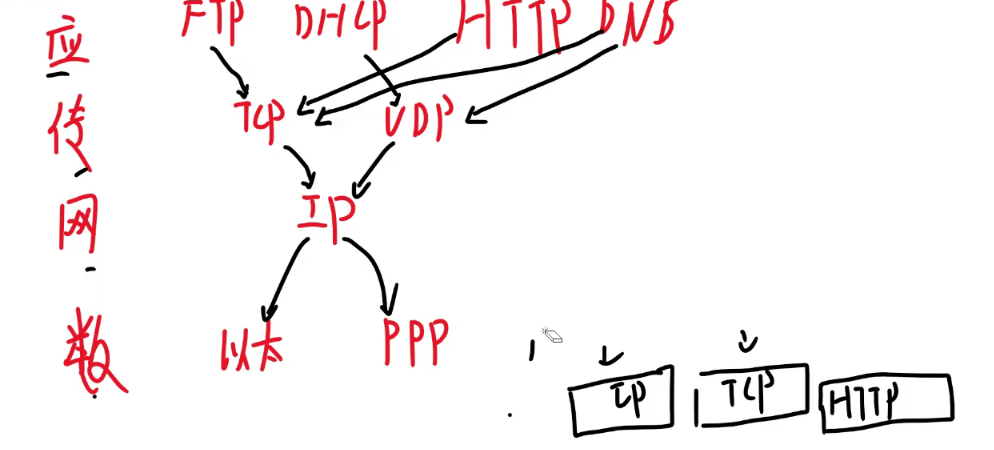 应 FTP DHCP HTTP DNS
传 TCP UDP
网 IP
数 以太 PPP
IP TCP HTTP